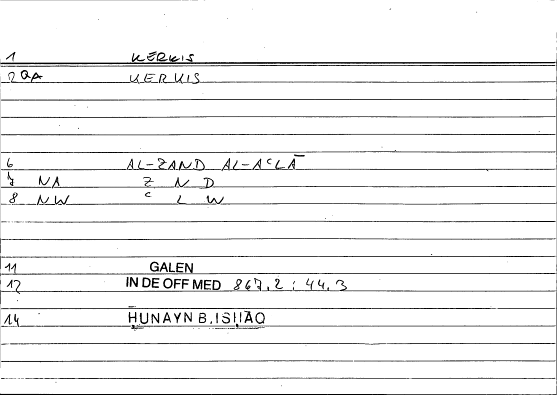 1 KERKIS
2 QA KERKIS
6 AL-ZAND AL-AᶜLĀ
7 NA Z N D
8 NW ᶜ L W
11 GALEN
12 IN DE OFF MED 867,2 : 44,3
14 ḤUNAYN B. ISḤĀQ